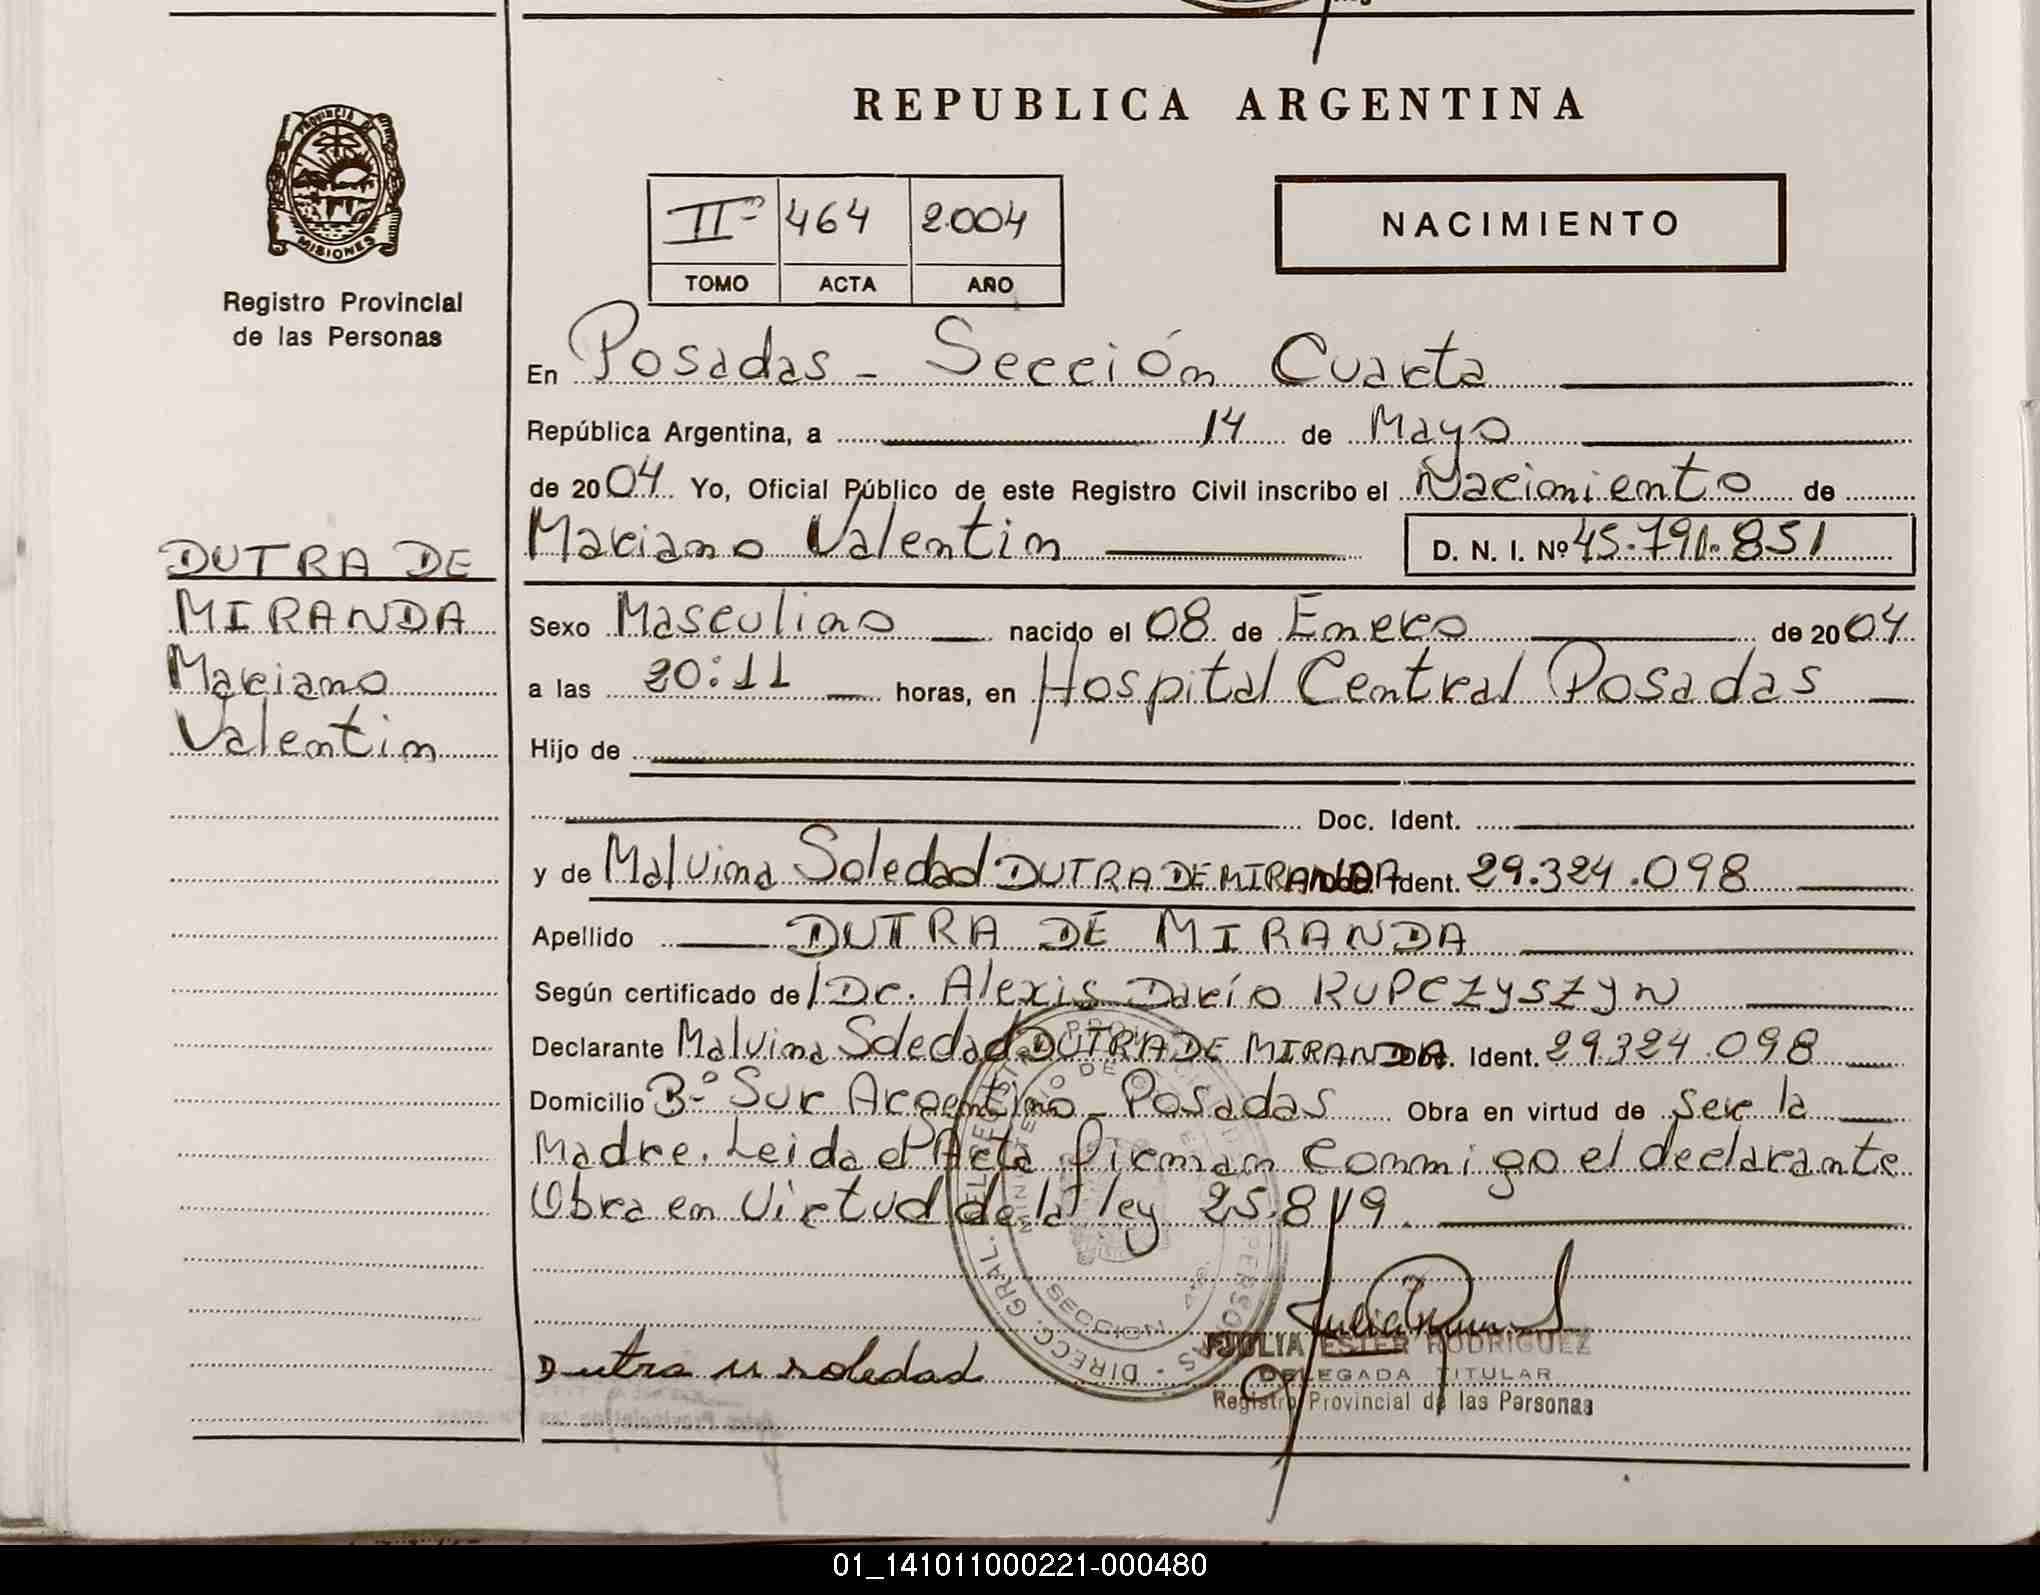 REPUBLICA ARGENTINA
PROVINCIA DE
MISIONES
Registro Provincial
de las Personas
IIº 464 2.004
TOMO ACTA AÑO
NACIMIENTO
En Posadas - Sección Cuarta
República Argentina, a 14 de Mayo
de 2004 Yo, Oficial Público de este Registro Civil inscribo el Nacimiento de
Mariano Valentin D. N. I. Nº 45.791.851
DUTRA DE
MIRANDA
Mariano
Valentin
Sexo Masculino nacido el 08 de Enero de 2004
a las 20:11 horas, en Hospital Central Posadas
Hijo de
Doc. Ident.
y de Malvina Soledad DUTRA DE MIRANDA Doc. Ident. 29.324.098
Apellido DUTRA DE MIRANDA
Según certificado de Dr. Alexis Darío RUPCZYSZYN
Declarante Malvina Soledad DUTRA DE MIRANDA Doc. Ident. 29.324.098
Domicilio Bº Sur Argentino - Posadas Obra en virtud de Ser la
Madre. Leida el Acta firman conmigo el declarante
Obra en Virtud de la ley 25.819.
Dutra M soledad
JULIA ESTER RODRIGUEZ
DELEGADA TITULAR
Registro Provincial de las Personas
01_141011000221-000480